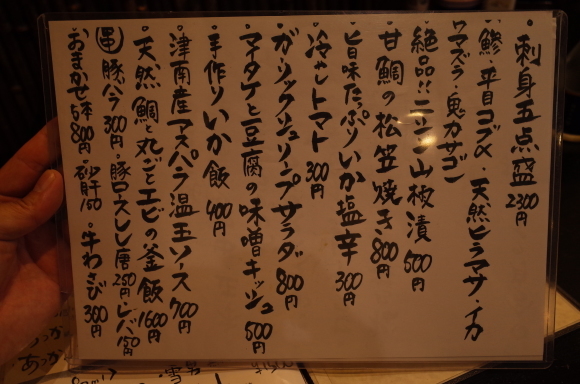 ・刺身五点盛 2300円
・鯵・平目コブ〆・天然ヒラマサ・イカ
ウマズラ・鬼カサゴ
・絶品!!ニシン山椒漬 500円
・甘鯛の松笠焼き 800円
・旨味たっぷりいか塩辛 300円
・冷やしトマト 300円
・ガーリックシュリンプサラダ 800円
・マイタケと豆腐の味噌キッシュ 500円
・手作りいか飯 400円
・津南産アスパラ温玉ソース 700円
・天然鯛と丸ごとエビの釜飯 1600円
串 豚バラ 300円・豚ロースしそ 250円・レバ 150円
おまかせ5本 800円・砂肝 150・牛わさび 300円